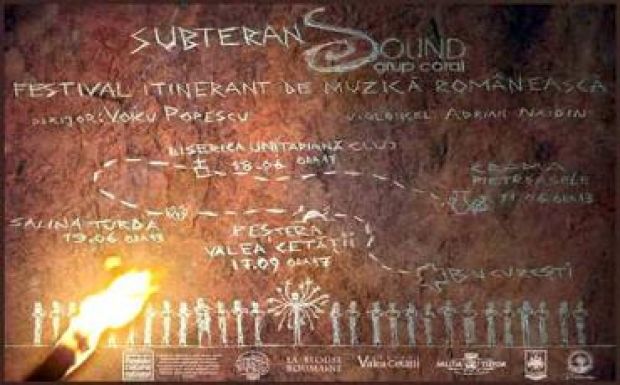 SUBTERAN
SOUND
grup coral
FESTIVAL ITINERANT DE MUZICĂ ROMÂNEASCĂ
DIRIJOR: VOICU POPESCU
VIOLONCEL ADRIAN NAIDIN
BISERICA UNITARIANĂ CLUJ
18.06
CRAMA
PIETROASELE
SALINA TURDA
19.06 ORA 13
PEȘTERA
VALEA CETĂȚII
17.09 ORA 17
BUCUREȘTI
LA BLOUSE
ROUMAINE
Valea Cetății